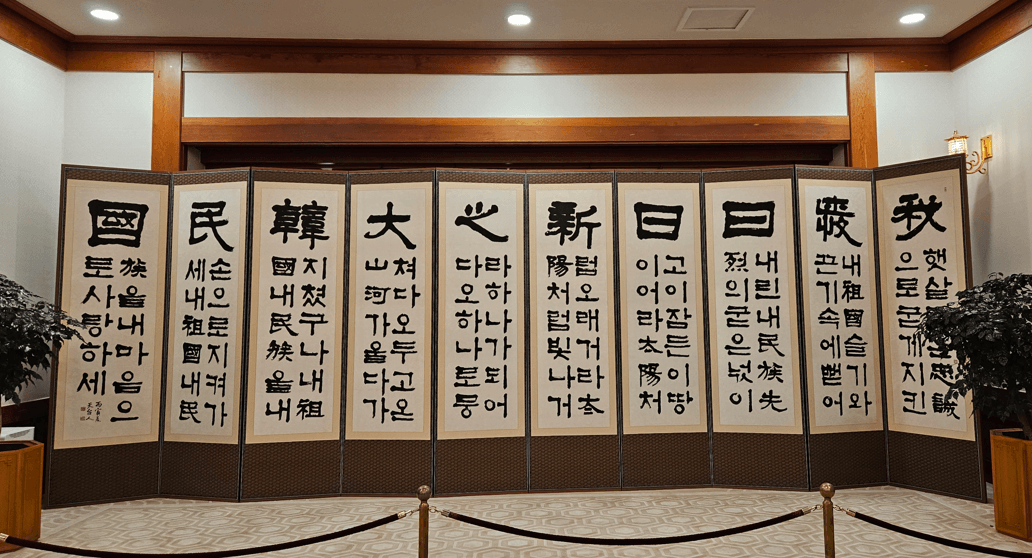 秋
햇살
忠誠
으로굳게지킨
내祖國슬기와
끈기속에뻗어
日
내린내民族先
烈의굳은넋이
日
고이잠든이땅
이어라太陽처
新
럼오래거라太
陽처럼빛나거
心
라하나가되어
다오하나로둥
大
쳐다오두고온
山河가을다가
韓
지쳤구나내祖
國내民族을내
民
손으로지켜가
세내祖國내民
國
族을내마음으
로사랑하세